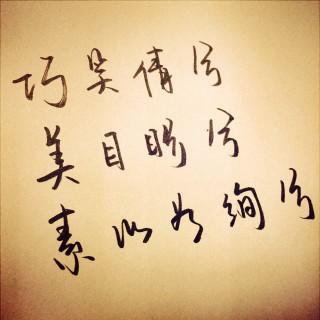 巧笑倩兮
美目盼兮
素以为绚兮